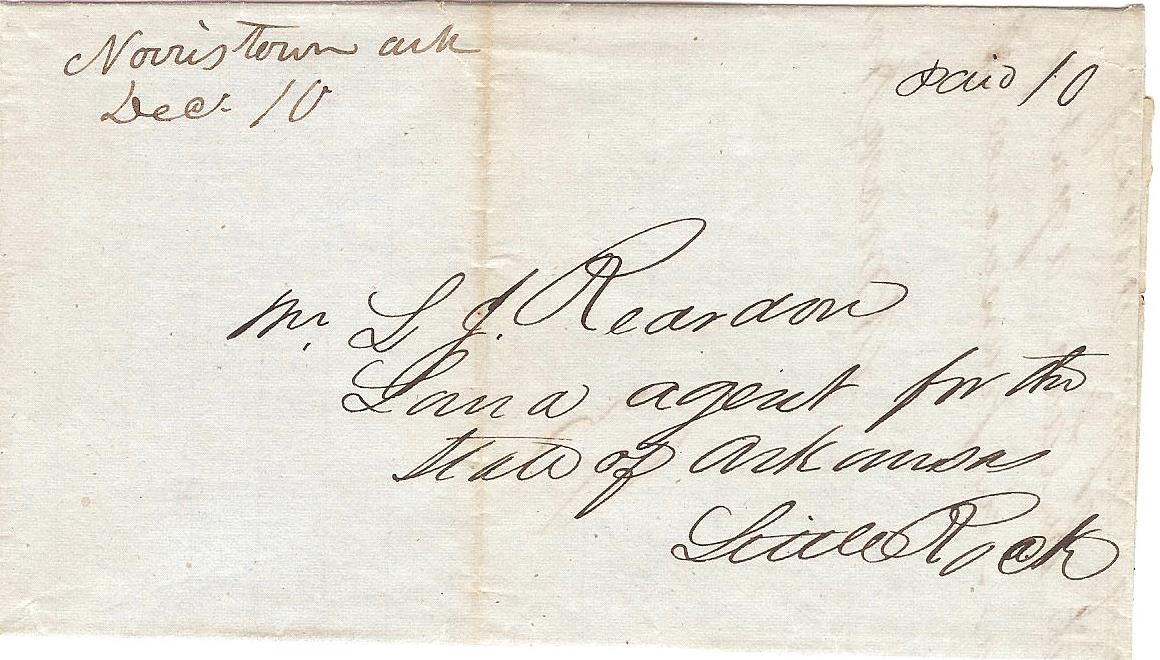 Norristown ark
Decr 10
paid 10
Mr. L J. Reardon
Land agent for the
State of Arkansas
Little Rock